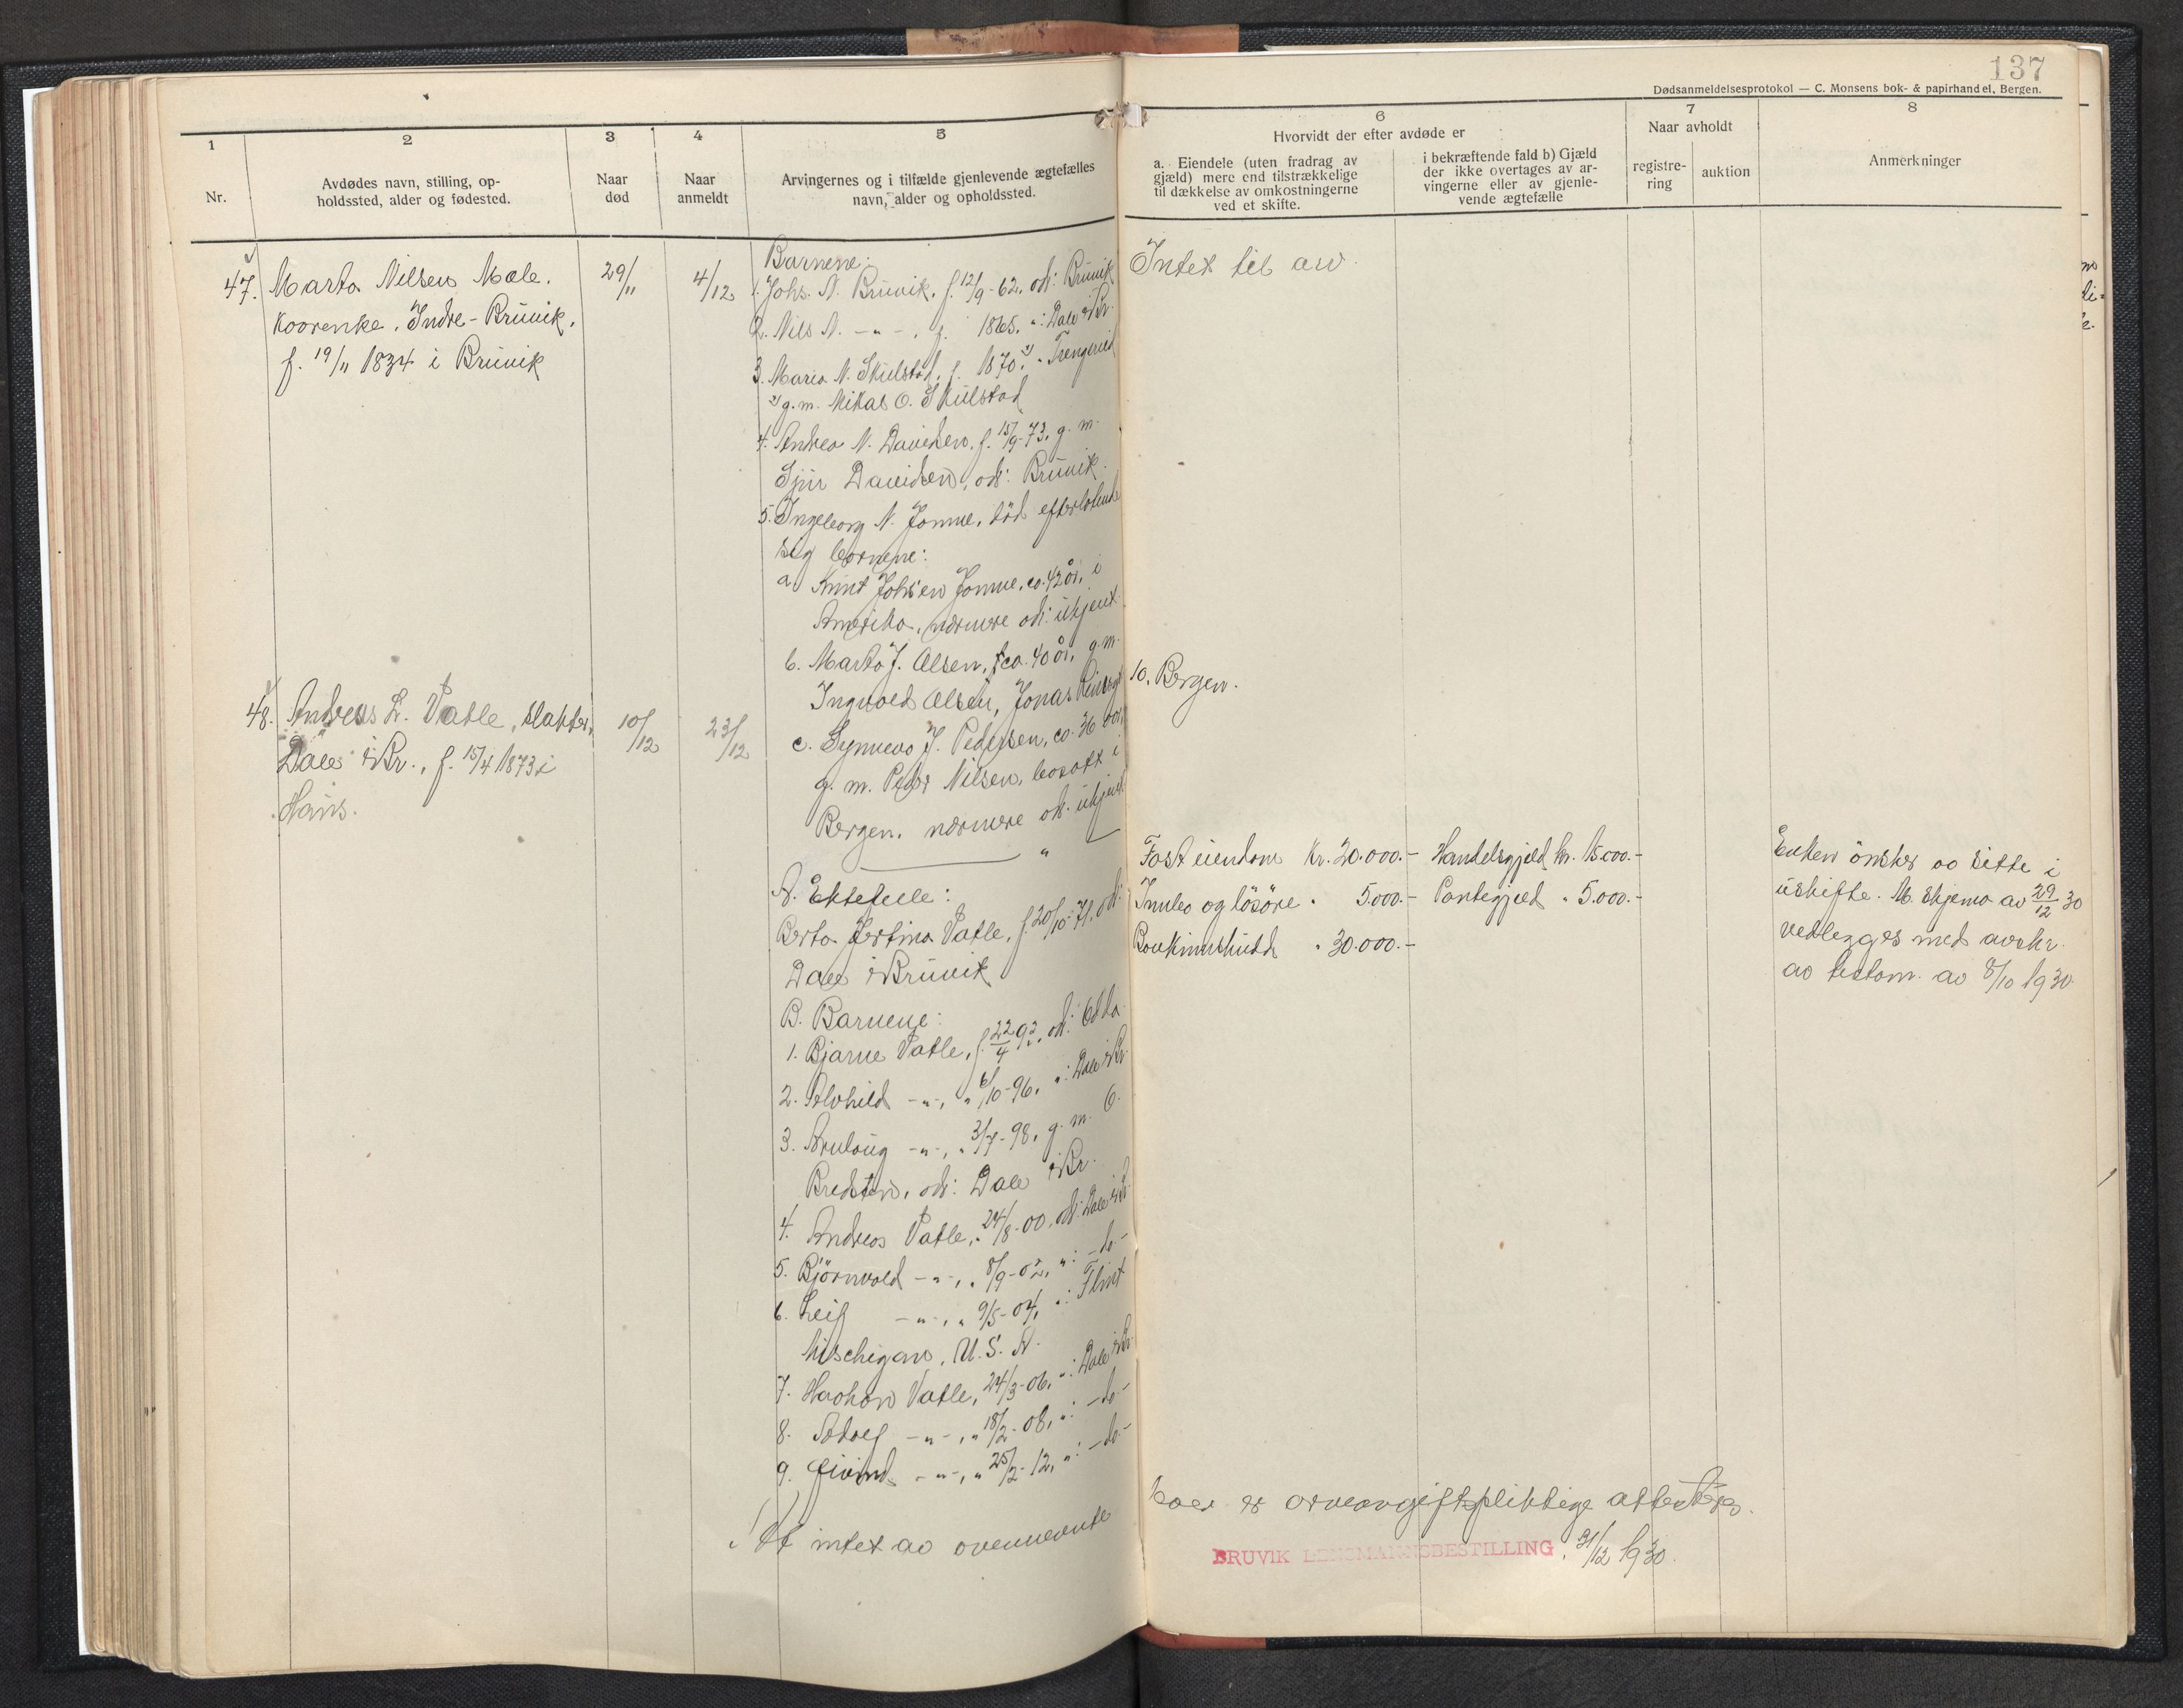 137
Dødsanmeldelsesprotokol — C. Monsens bok- & papirhandel, Bergen.
1
Nr.
2
Avdødes navn, stilling, op-
holdssted, alder og fødested.
3
Naar
død
4
Naar
anmeldt
5
Arvingernes og i tilfælde gjenlevende ægtefælles
navn, alder og opholdssted.
6
Hvorvidt der efter avdøde er
a. Eiendele (uten fradrag av
gjæld) mere end tilstrækkelige
til dækkelse av omkostningerne
ved et skifte.
i bekræftende fald b) Gjæld
der ikke overtages av ar-
vingerne eller av gjenle-
vende ægtefælle
7
Naar avholdt
registre-
ring
auktion
8
Anmerkninger
47. Marta Nilsen Mæle.
Kaarenke, Indre-Bruvik,
f. 19/11 1834 i Bruvik
29/11
4/12
Barnene:
1. Johs. N. Bruvik, f. 12/9-62, od: Bruvik
2. Nils N. -"-, f. 1865. ": Dale i/Br.
3. Maria N. Skulstad, f. 1870. x) " Trengereid
x) g. m. Mikal O. Skulstad
4. Andrea N. Davidsen, f. 15/9-73, g. m.
Sjur Davidsen, ods: Bruvik.
5. Ingeborg N. Fonnue, död efterlatende
seg barnene:
a. Knut Johs'en Fonnue, ca. 42 år, i
Amerika, nærmere ods: ukjent.
b. Marta J. Olsen, f ca. 40 år, g. m.
Ingvald Olsen, Jonas Reinsgt
10, Bergen.
c. Synneva J. Pedersen, ca. 36 aar,
g. m. Peder Nilsen, bosatt i
Bergen, nærmere ods. ukjent
"
Intet til arv.
48. Andreas L. Vatle, slakter,
Dale i/Br., f. 15/4 1873 i
Haus.
10/12
23/12
A. Ektefelle:
Berta Jertina Vatle, f. 20/10-71. od:
Dale i/Bruvik
B. Barnene:
1. Bjarne Vatle, f. 22/4 92, od: Odda
2. Alvhild -"-, " 6/10-96, ": Dale i/Br.
3. Arnlaug -"-, " 3/7-98, g. m. O.
Bredsten, ods: Dale i/Br.
4. Andreas Vatle, " 24/8-00, od: Dale i/Br
5. Björnvald -"-, " 8/9-02, ": -do-
6. Leif -"-, " 9/5-04, ": Flint
Mischigan, U. S. A.
7. Haakon Vatle, 24/3-06, ": Dale i/Br.
8. Adolf -"-, " 18/2-08, ": -do-
9. Eivind -"-, " 25/2-12, ": -do-
Fast eiendom Kr. 20.000.- Handelsgjeld kr. 15.000.-
Innbo og lösöre " 5.000.- Pantegjeld " 5.000.-
Bankinnskudd " 30.000.-
Enken önsker aa sitte i
uskifte. M. skjema av 29/12 30
vedlegges med avskr.
av testam. av 8/10 1930.
At intet av ovennevnte
boer er arveavgiftspliktige attesteres.
BRUVIK LENSMANNSBESTILLING, 31/12 1930.